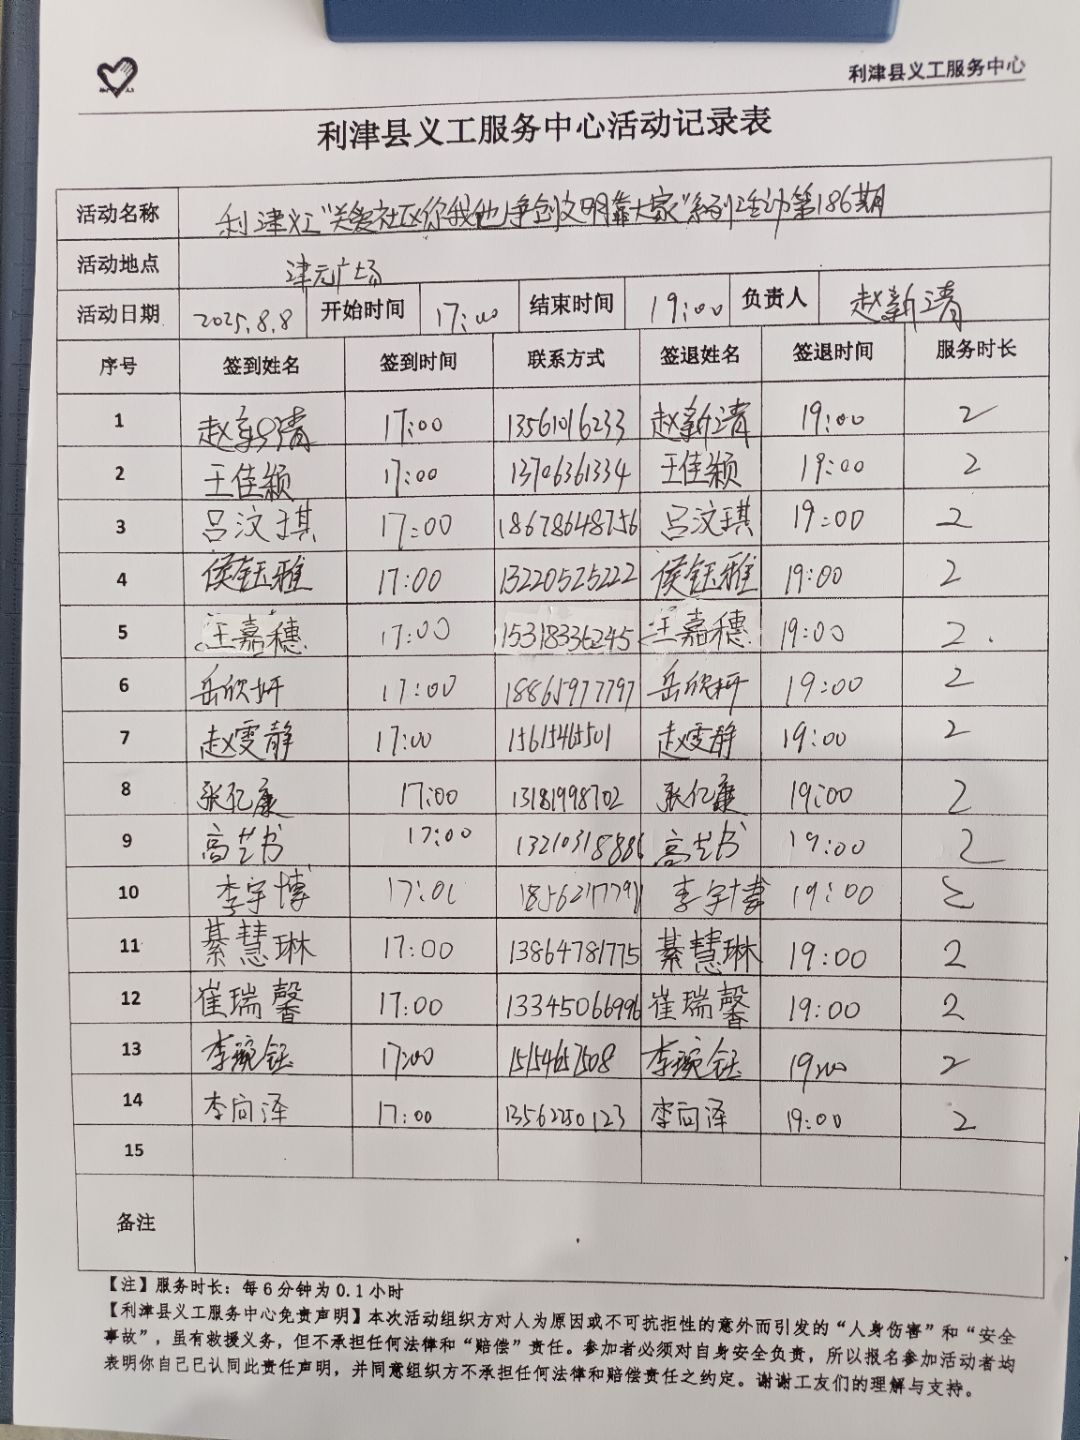 利津县义工服务中心
利津县义工服务中心活动记录表
活动名称 利津义工“关爱社区你我他,争创文明靠大家”系列活动第186期
活动地点 津元广场
活动日期 2025.8.8 开始时间 17:00 结束时间 19:00 负责人 赵新清
序号 签到姓名 签到时间 联系方式 签退姓名 签退时间 服务时长
1 赵新清 17:00 13561016233 赵新清 19:00 2
2 王佳颖 17:00 13706361334 王佳颖 19:00 2
3 吕汶琪 17:00 18678648756 吕汶琪 19:00 2
4 侯钰雅 17:00 13220525222 侯钰雅 19:00 2
5 汪嘉穗 17:00 15318336245 汪嘉穗 19:00 2
6 岳欣妍 17:00 18865977797 岳欣妍 19:00 2
7 赵雯静 17:00 15615465501 赵雯静 19:00 2
8 张亿康 17:00 13181998702 张亿康 19:00 2
9 高艺书 17:00 13210318886 高艺书 19:00 2
10 李宇博 17:00 李宇博 19:00 2
11 綦慧琳 17:00 13864781775 綦慧琳 19:00 2
12 崔瑞馨 17:00 13345066996 崔瑞馨 19:00 2
13 李琬钰 17:00 李琬钰 19:00 2
14 李向泽 17:00 13562250123 李向泽 19:00 2
15
备注
【注】服务时长：每6分钟为0.1小时
【利津县义工服务中心免责声明】本次活动组织方对人为原因或不可抗拒性的意外而引发的“人身伤害”和“安全
事故”，虽有救援义务，但不承担任何法律和“赔偿”责任。参加者必须对自身安全负责，所以报名参加活动者均
表明你自己已认同此责任声明，并同意组织方不承担任何法律和赔偿责任之约定。谢谢工友们的理解与支持。